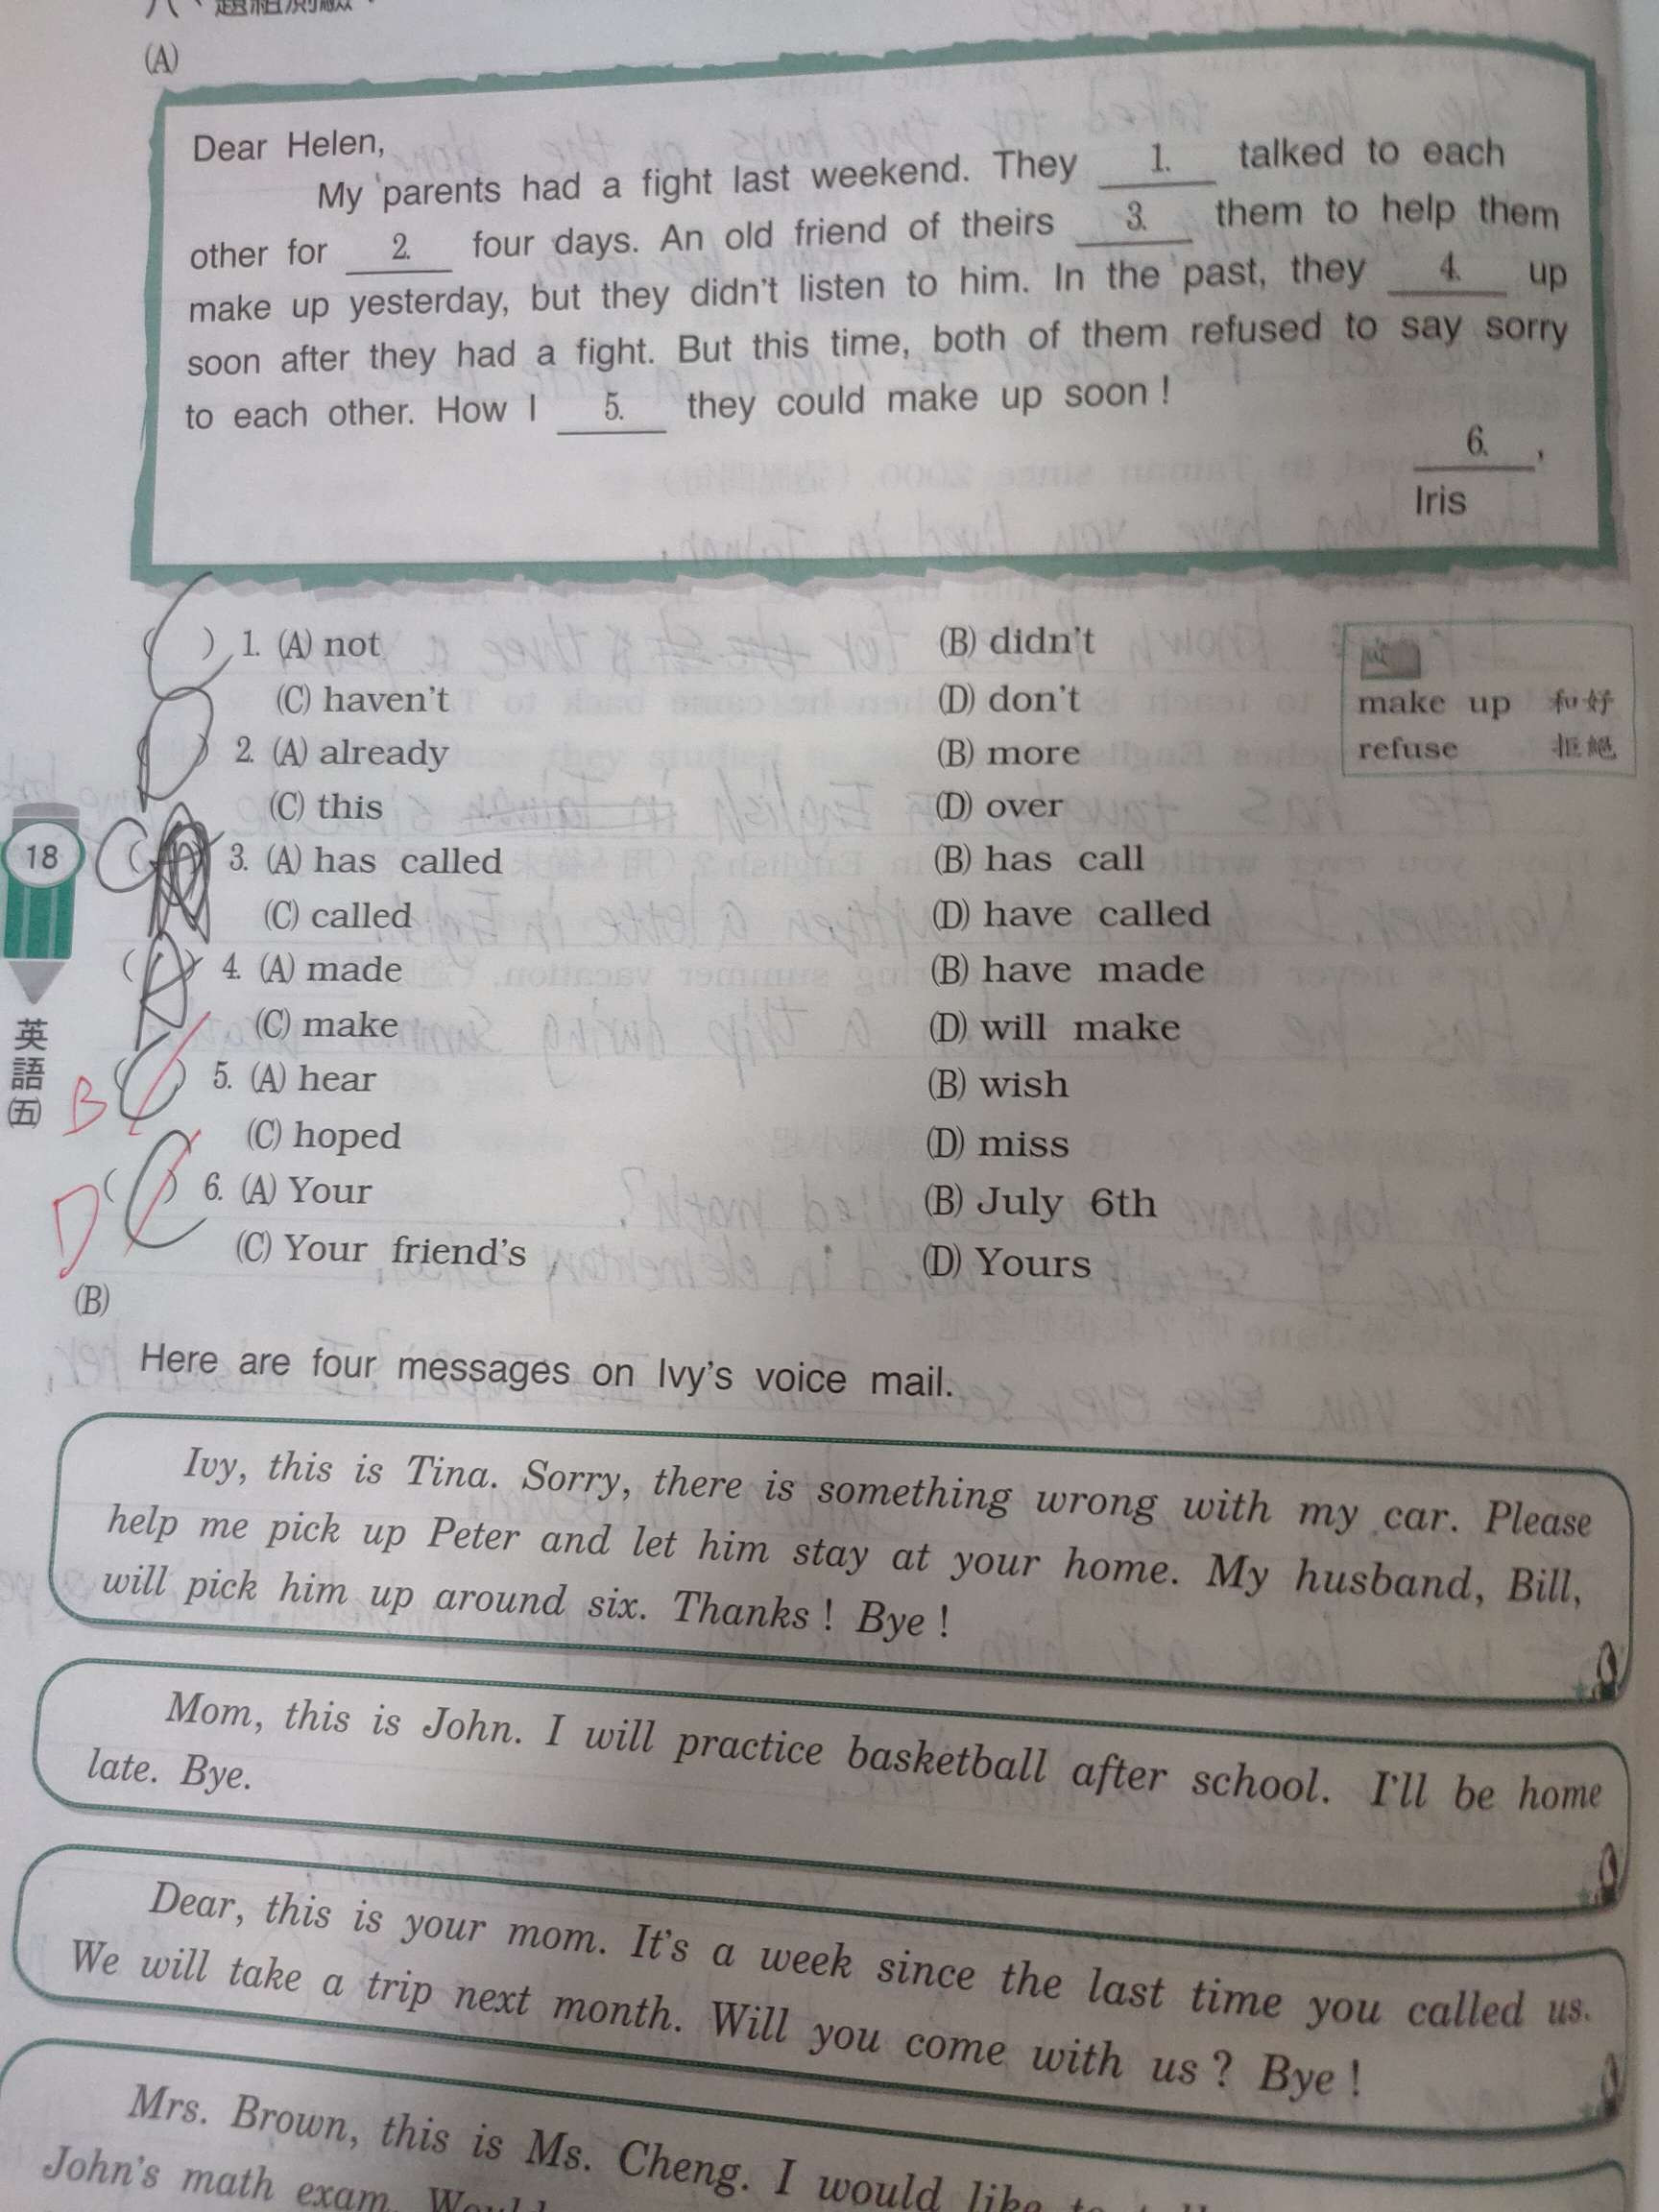 八、題組測驗：
(A)
Dear Helen,
My parents had a fight last weekend. They 1. talked to each
other for 2. four days. An old friend of theirs 3. them to help them
make up yesterday, but they didn't listen to him. In the past, they 4. up
soon after they had a fight. But this time, both of them refused to say sorry
to each other. How I 5. they could make up soon !
6. ,
Iris
C ( ) 1. (A) not (B) didn't
(C) haven't (D) don't
D ( ) 2. (A) already (B) more
(C) this (D) over
C ( ) 3. (A) has called (B) has call
(C) called (D) have called
A ( ) 4. (A) made (B) have made
(C) make (D) will make
B C ( ) 5. (A) hear (B) wish
(C) hoped (D) miss
D C ( ) 6. (A) Your (B) July 6th
(C) Your friend's (D) Yours
make up 和好
refuse 拒絕
18
英語(五)
(B)
Here are four messages on Ivy's voice mail.
Ivy, this is Tina. Sorry, there is something wrong with my car. Please
help me pick up Peter and let him stay at your home. My husband, Bill,
will pick him up around six. Thanks ! Bye !
Mom, this is John. I will practice basketball after school. I'll be home
late. Bye.
Dear, this is your mom. It's a week since the last time you called us.
We will take a trip next month. Will you come with us ? Bye !
Mrs. Brown, this is Ms. Cheng. I would like to
John's math exam.